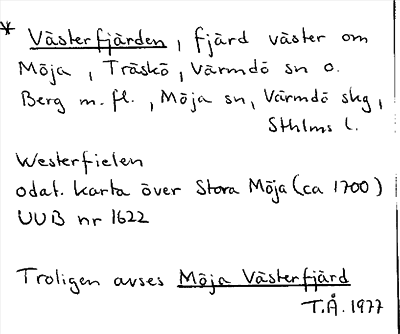 * Västerfjärden, fjärd väster om
Möja, Träskö, Värmdö sn o.
Berg m. fl., Möja sn, Värmdö skg,
Sthlms l.
Westerfielen
odat. karta över Stora Möja (ca 1700)
UUB nr 1622
Troligen avses Möja Västerfjärd
T.Å. 1977